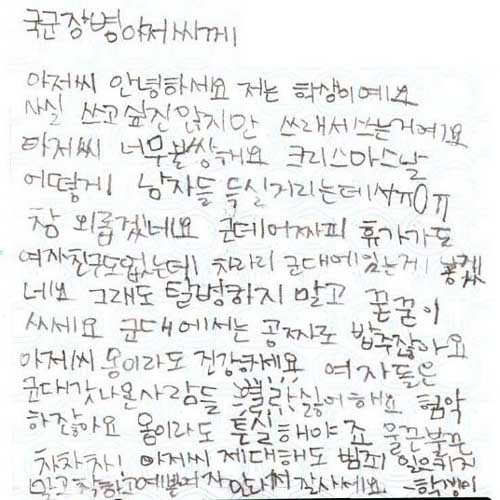 국군장병아저씨께
아저씨 안녕하세요 저는 학생이예요
사실 쓰고싶진 않지만 쓰래서쓰는거에요
아저씨 너무불쌍해요 크리스마스날
어떻게 남자들 득실거리는데서ㅠ0ㅠ
참 외롭겠네요 군데어짜피 휴가가도
여자친구도없는데 차라리 군대에있는게 낳겠
네요 그래도 탈병하지 말고 꾿꾿이
싸세요 군대에서는 공짜로 밥주잖아요
아저씨 몽이라도 건강하세요 여자들은
군대갓나온사람들 별라싫어해요 험악
하잖아요 몽이라도 튼실해야죠 울끈불끈
차차차! 아저씨 제대해도 범죄 일으키지
말고 착하고예쁜여자 만나서 잘사세요 -학생이